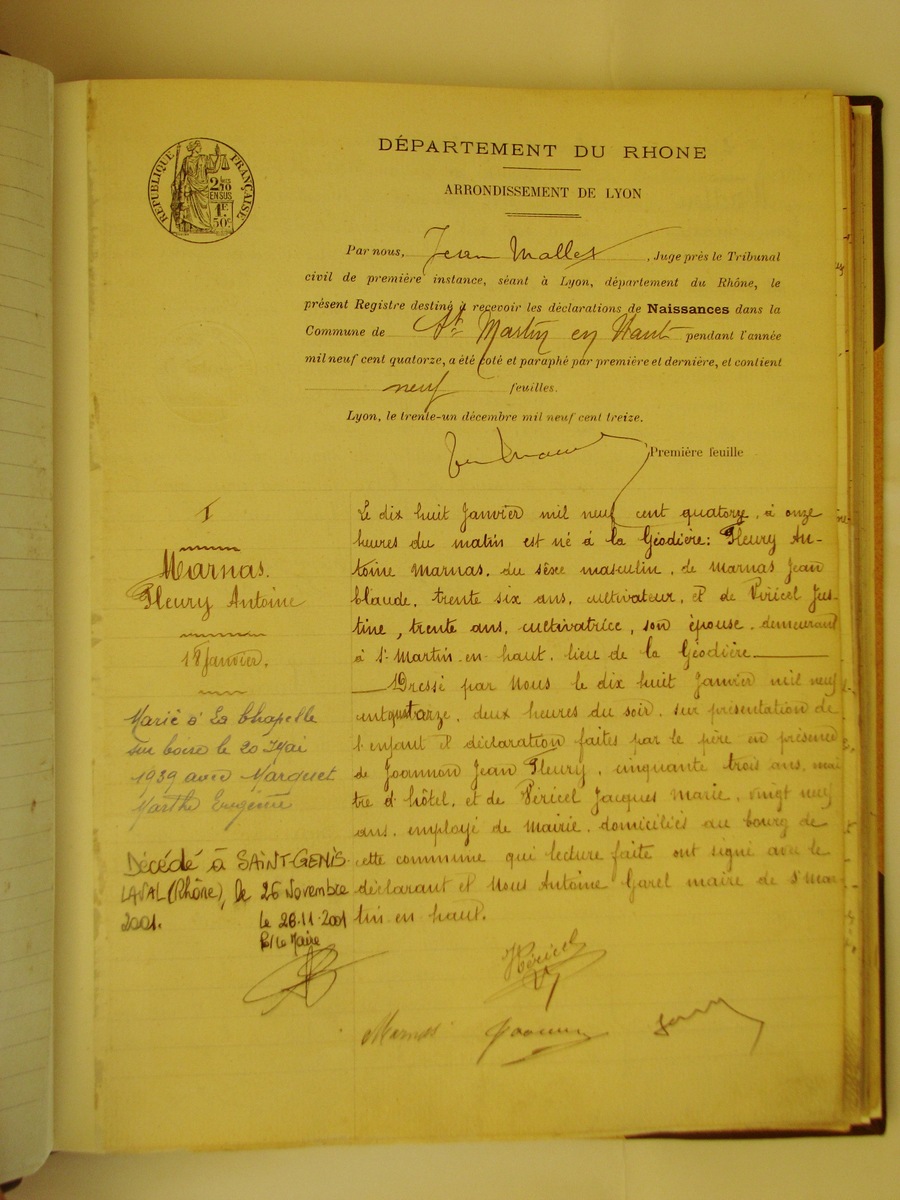 DÉPARTEMENT DU RHONE
ARRONDISSEMENT DE LYON
RÉPUBLIQUE FRANÇAISE
2/10
EN SUS
1F
50c
Par nous, Jean Mallet, Juge près le Tribunal
civil de première instance, séant à Lyon, département du Rhône, le
présent Registre destiné à recevoir les déclarations de Naissances dans la
Commune de St Martin en Haut pendant l'année
mil neuf cent quatorze, a été coté et paraphé par première et dernière, et contient
neuf feuilles.
Lyon, le trente-un décembre mil neuf cent treize.
Première feuille
I
Marnas.
Fleury Antoine
18 Janvier.
Marié à La Chapelle
sur Coise le 20 Mai
1939 avec Marquet
Marthe Eugénie
Décédé à SAINT-GENIS-
LAVAL (Rhône), le 26 Novembre
2001.
le 28.11.2001
P/ Le Maire
Le dix huit Janvier mil neuf cent quatorze, à onze
heures du matin est né à la Géodière: Fleury An-
toine Marnas, du sêxe masculin, de Marnas Jean
Claude, trente six ans, cultivateur, et de Piricel Jus-
tine, trente ans, cultivatrice, son épouse, demeurant
à St Martin-en-haut, lieu de la Géodière
Dressé par Nous le dix huit Janvier mil neuf
cent quatorze, deux heures du soir, sur présentation de
l'enfant et déclaration faites par le père en présence
de Joannon Jean Fleury, cinquante trois ans, maî
tre d'hôtel, et de Piricel Jacques Marie, vingt neuf
ans, employé de Mairie, domiciliés au bourg de
cette commune qui lecture faite ont signé avec le
déclarant et Nous Antoine Garel maire de St Mar-
tin-en-haut.
Piricel
Marnas